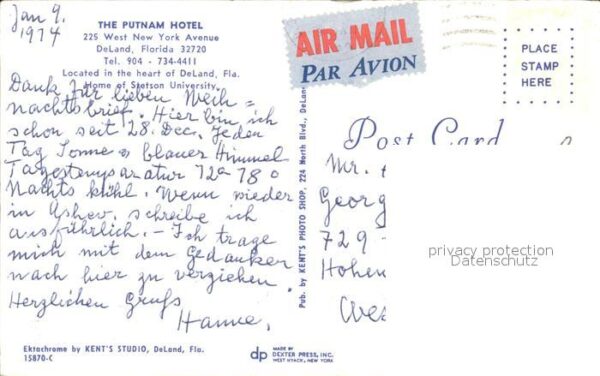 Jan 9.
1974
THE PUTNAM HOTEL
225 West New York Avenue
DeLand, Florida 32720
Tel. 904 - 734-4411
Located in the heart of DeLand, Fla.
Home of Stetson University
Dank für lieben Weih=
nachtsbrief. Hier bin ich
schon seit 28. Dec. Jeden
Tag Sonne & blauer Himmel
Tagestemparatur 72-78°
Nachts kühl. Wenn wieder
in Ashev. schreibe ich
ausführlich. - Ich trage
mich mit dem Gedanken
nach hier zu verziehen.
Herzlichen Gruß
Hanne.
Ektachrome by KENT'S STUDIO, DeLand, Fla.
15870-C
Pub. by KENT'S PHOTO SHOP, 224 North Blvd., DeLan
dp
MADE BY
DEXTER PRESS, INC.
WEST NYACK, NEW YORK
AIR MAIL
PAR AVION
PLACE
STAMP
HERE
Post Card
Mr.
Georg
729
Hohen
Wes
privacy protection
Datenschutz